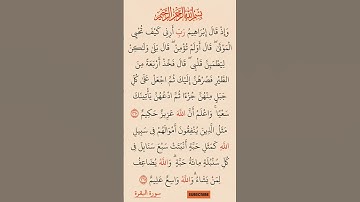 بِسْمِ اللَّهِ الرَّحْمَٰنِ الرَّحِيمِ
وَإِذْ قَالَ إِبْرَاهِيمُ رَبِّ أَرِنِي كَيْفَ تُحْيِي
الْمَوْتَىٰ قَالَ أَوَلَمْ تُؤْمِنْ قَالَ بَلَىٰ وَلَٰكِنْ
لِيَطْمَئِنَّ قَلْبِي قَالَ فَخُذْ أَرْبَعَةً مِنَ
الطَّيْرِ فَصُرْهُنَّ إِلَيْكَ ثُمَّ اجْعَلْ عَلَىٰ كُلِّ
جَبَلٍ مِنْهُنَّ جُزْءًا ثُمَّ ادْعُهُنَّ يَأْتِينَكَ
سَعْيًا وَاعْلَمْ أَنَّ اللَّهَ عَزِيزٌ حَكِيمٌ
مَثَلُ الَّذِينَ يُنْفِقُونَ أَمْوَالَهُمْ فِي سَبِيلِ
اللَّهِ كَمَثَلِ حَبَّةٍ أَنْبَتَتْ سَبْعَ سَنَابِلَ فِي
كُلِّ سُنْبُلَةٍ مِائَةُ حَبَّةٍ وَاللَّهُ يُضَاعِفُ
لِمَنْ يَشَاءُ وَاللَّهُ وَاسِعٌ عَلِيمٌ
سورة البقرة
SUBSCRIBE